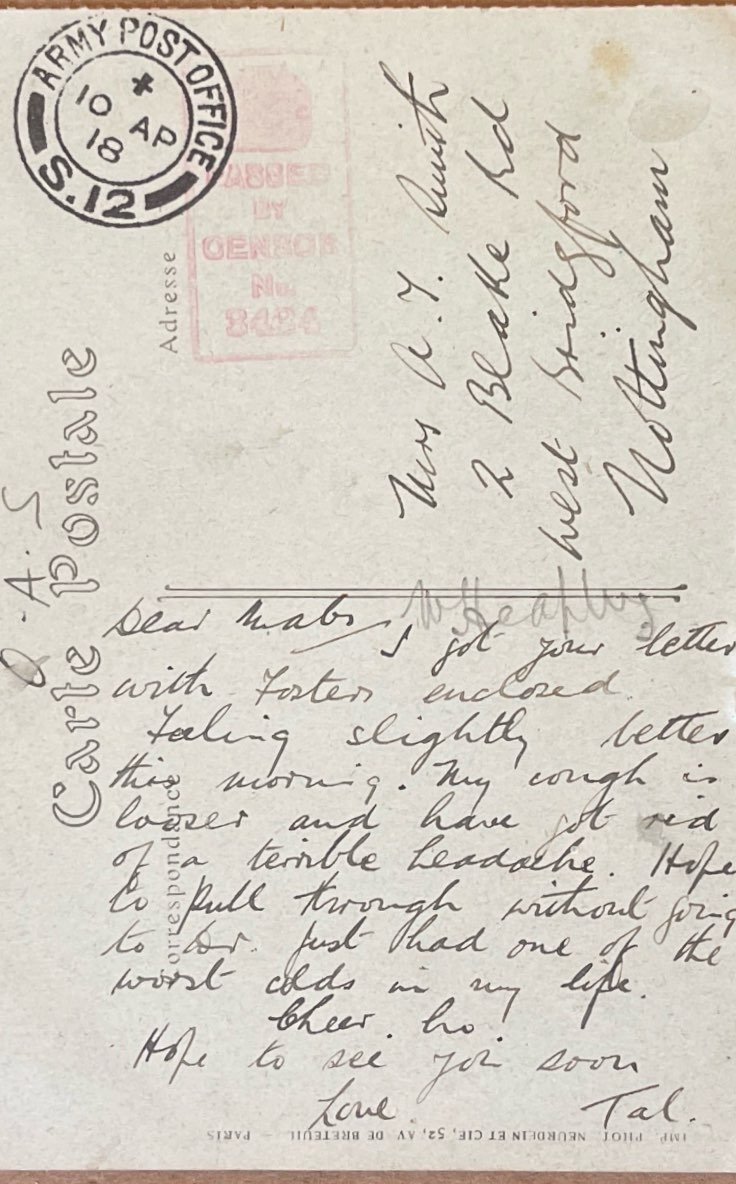 ARMY POST OFFICE
* 10 AP 18
S.12
PASSED
BY
CENSOR
No.
3424
Carte Postale
Adresse
Correspondance
O. A. S
Mrs A. T. Smith
2 Blake Rd
West Bridgford
Nottingham
Dear Mabs, I got your letter
with Fosters enclosed.
Feeling slightly better
this morning. My cough is
looser and have got rid
of a terrible headache. Hope
to pull through without going
to Dr. Just had one of the
worst colds in my life.
Cheer ho.
Hope to see you soon
Love Tal.
IMP. PHOT. NEURDEIN ET CIE, 52, AV. DE BRETEUIL — PARIS